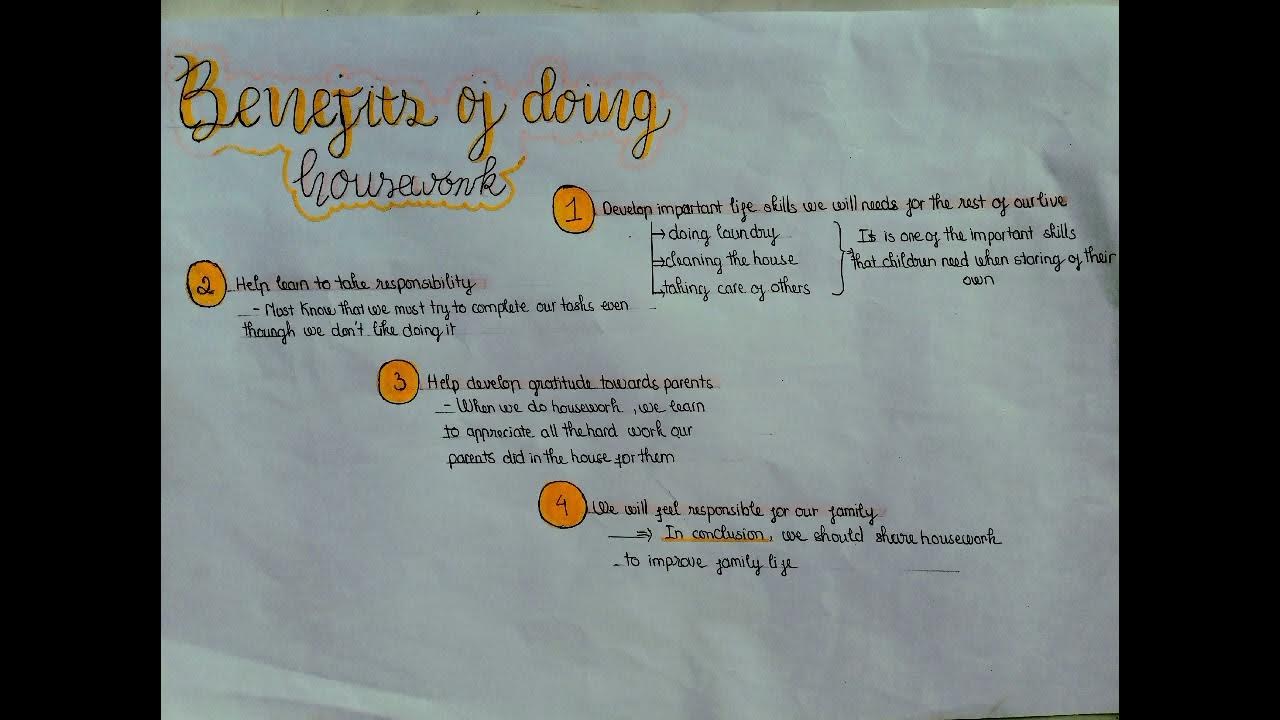 Benefits of doing
housework
1 Develop important life skills we will needs for the rest of our live
→ doing laundry
→ cleaning the house
→ taking care of others
It is one of the important skills
that children need when storing of their
own
2 Help learn to take responsibility
- Most Know that we must try to complete our tasks even
though we don't like doing it
3 Help develop gratitude towards parents
- When we do housework, we learn
to appreciate all the hard work our
parents did in the house for them
4 We will feel responsible for our family
⇒ In conclusion, we should share housework
to improve family life